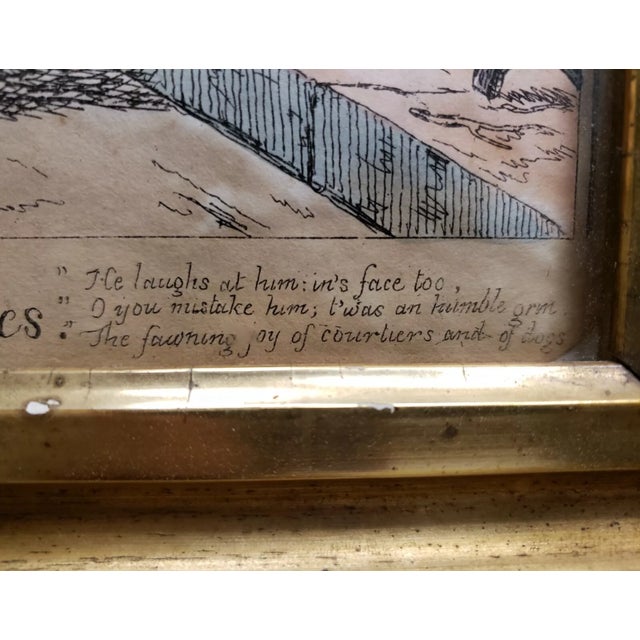 " He laughs at him: in's face too,
es." O you mistake him; t'was an humble grin
The fawning joy of courtiers and of dogs